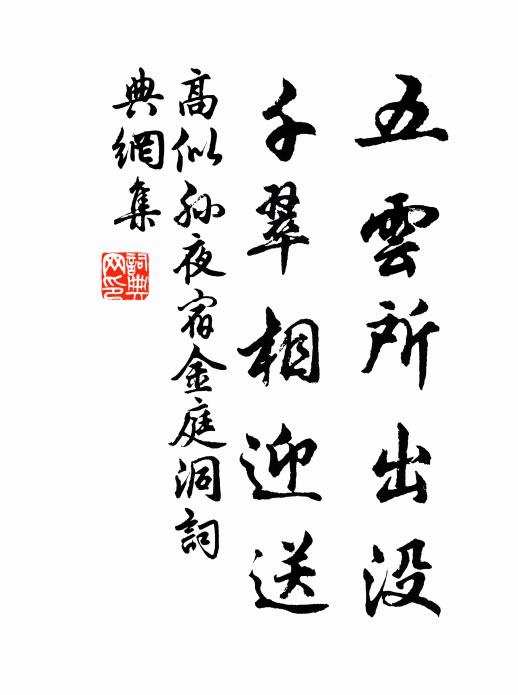 五雲所出没
千翠相迎送
高似孙夜宿金庭洞詞
典網集
詞典网印